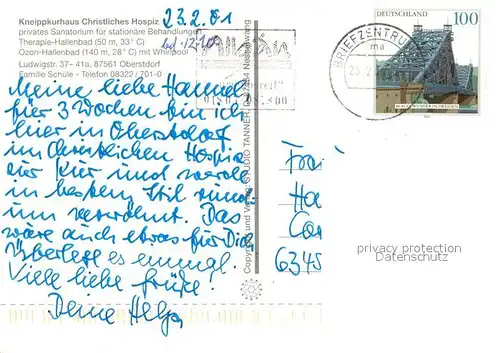 Kneippkurhaus Christliches Hospiz
privates Sanatorium für stationäre Behandlungen
Therapie-Hallenbad (50 m, 33° C)
Ozon-Hallenbad (140 m, 28° C) mit Whirlpool
Ludwigstr. 37–41a, 87561 Oberstdorf
Familie Schüle - Telefon 08322 / 701-0
23.2.01
Meine liebe Hannel
für 3 Wochen bin ich
hier in Oberstdorf
im Christlichen Hospiz
zur Kur und werde
in bestem Stil rund-
um verwöhnt. Das
wäre auch etwas für Dich
Überlege es einmal.
Viele liebe Grüße!
Deine Helga
Copyright und Verlag: STUDIO TANNER, Nesselwang
BRIEFZENTRUM
ma
DEUTSCHLAND 100
BLAUES WUNDER IN DRESDEN
Frau
Ha
6345
privacy protection
Datenschutz